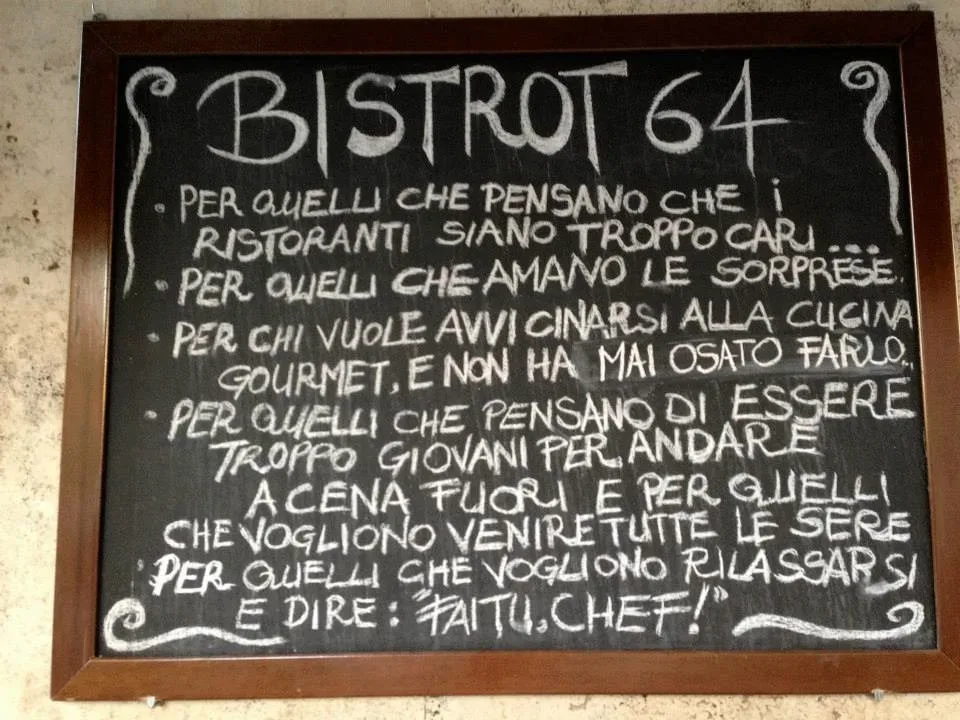 BISTROT 64
• PER QUELLI CHE PENSANO CHE i
RISTORANTI SIANO TROPPO CARI ...
• PER QUELLI CHE AMANO LE SORPRESE.
• PER CHI VUOLE AVVICINARSI ALLA CUCINA
GOURMET, E NON HA MAI OSATO FARLO..
• PER QUELLI CHE PENSANO DI ESSERE
TROPPO GIOVANI PER ANDARE
A CENA FUORI E PER QUELLI
CHE VOGLIONO VENIRE TUTTE LE SERE
• PER QUELLI CHE VOGLIONO RILASSARSI
E DIRE: "FAI TU, CHEF!"